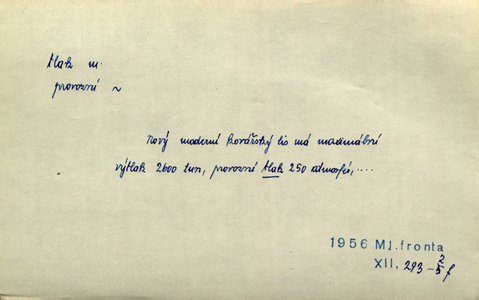 tlak m.
provozní ~
Nový moderní kovářský lis má maximální
výtlak 2600 tun, provozní tlak 250 atmosfér, ....
1956 Ml. fronta
XII, 293 - 2/5 f